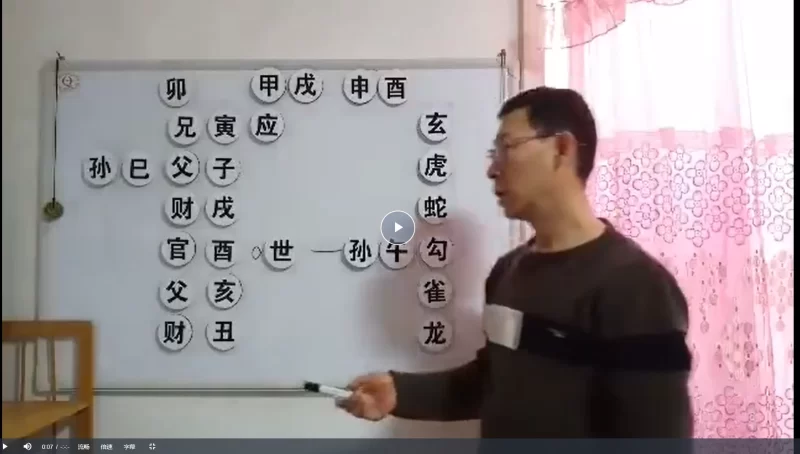 卯 甲戌 申酉
兄寅应 玄
孙巳 父子 虎
财戌 蛇
官酉 世 孙午 勾
父亥 雀
财丑 龙
0:07 / -:-:- 倍速 字幕